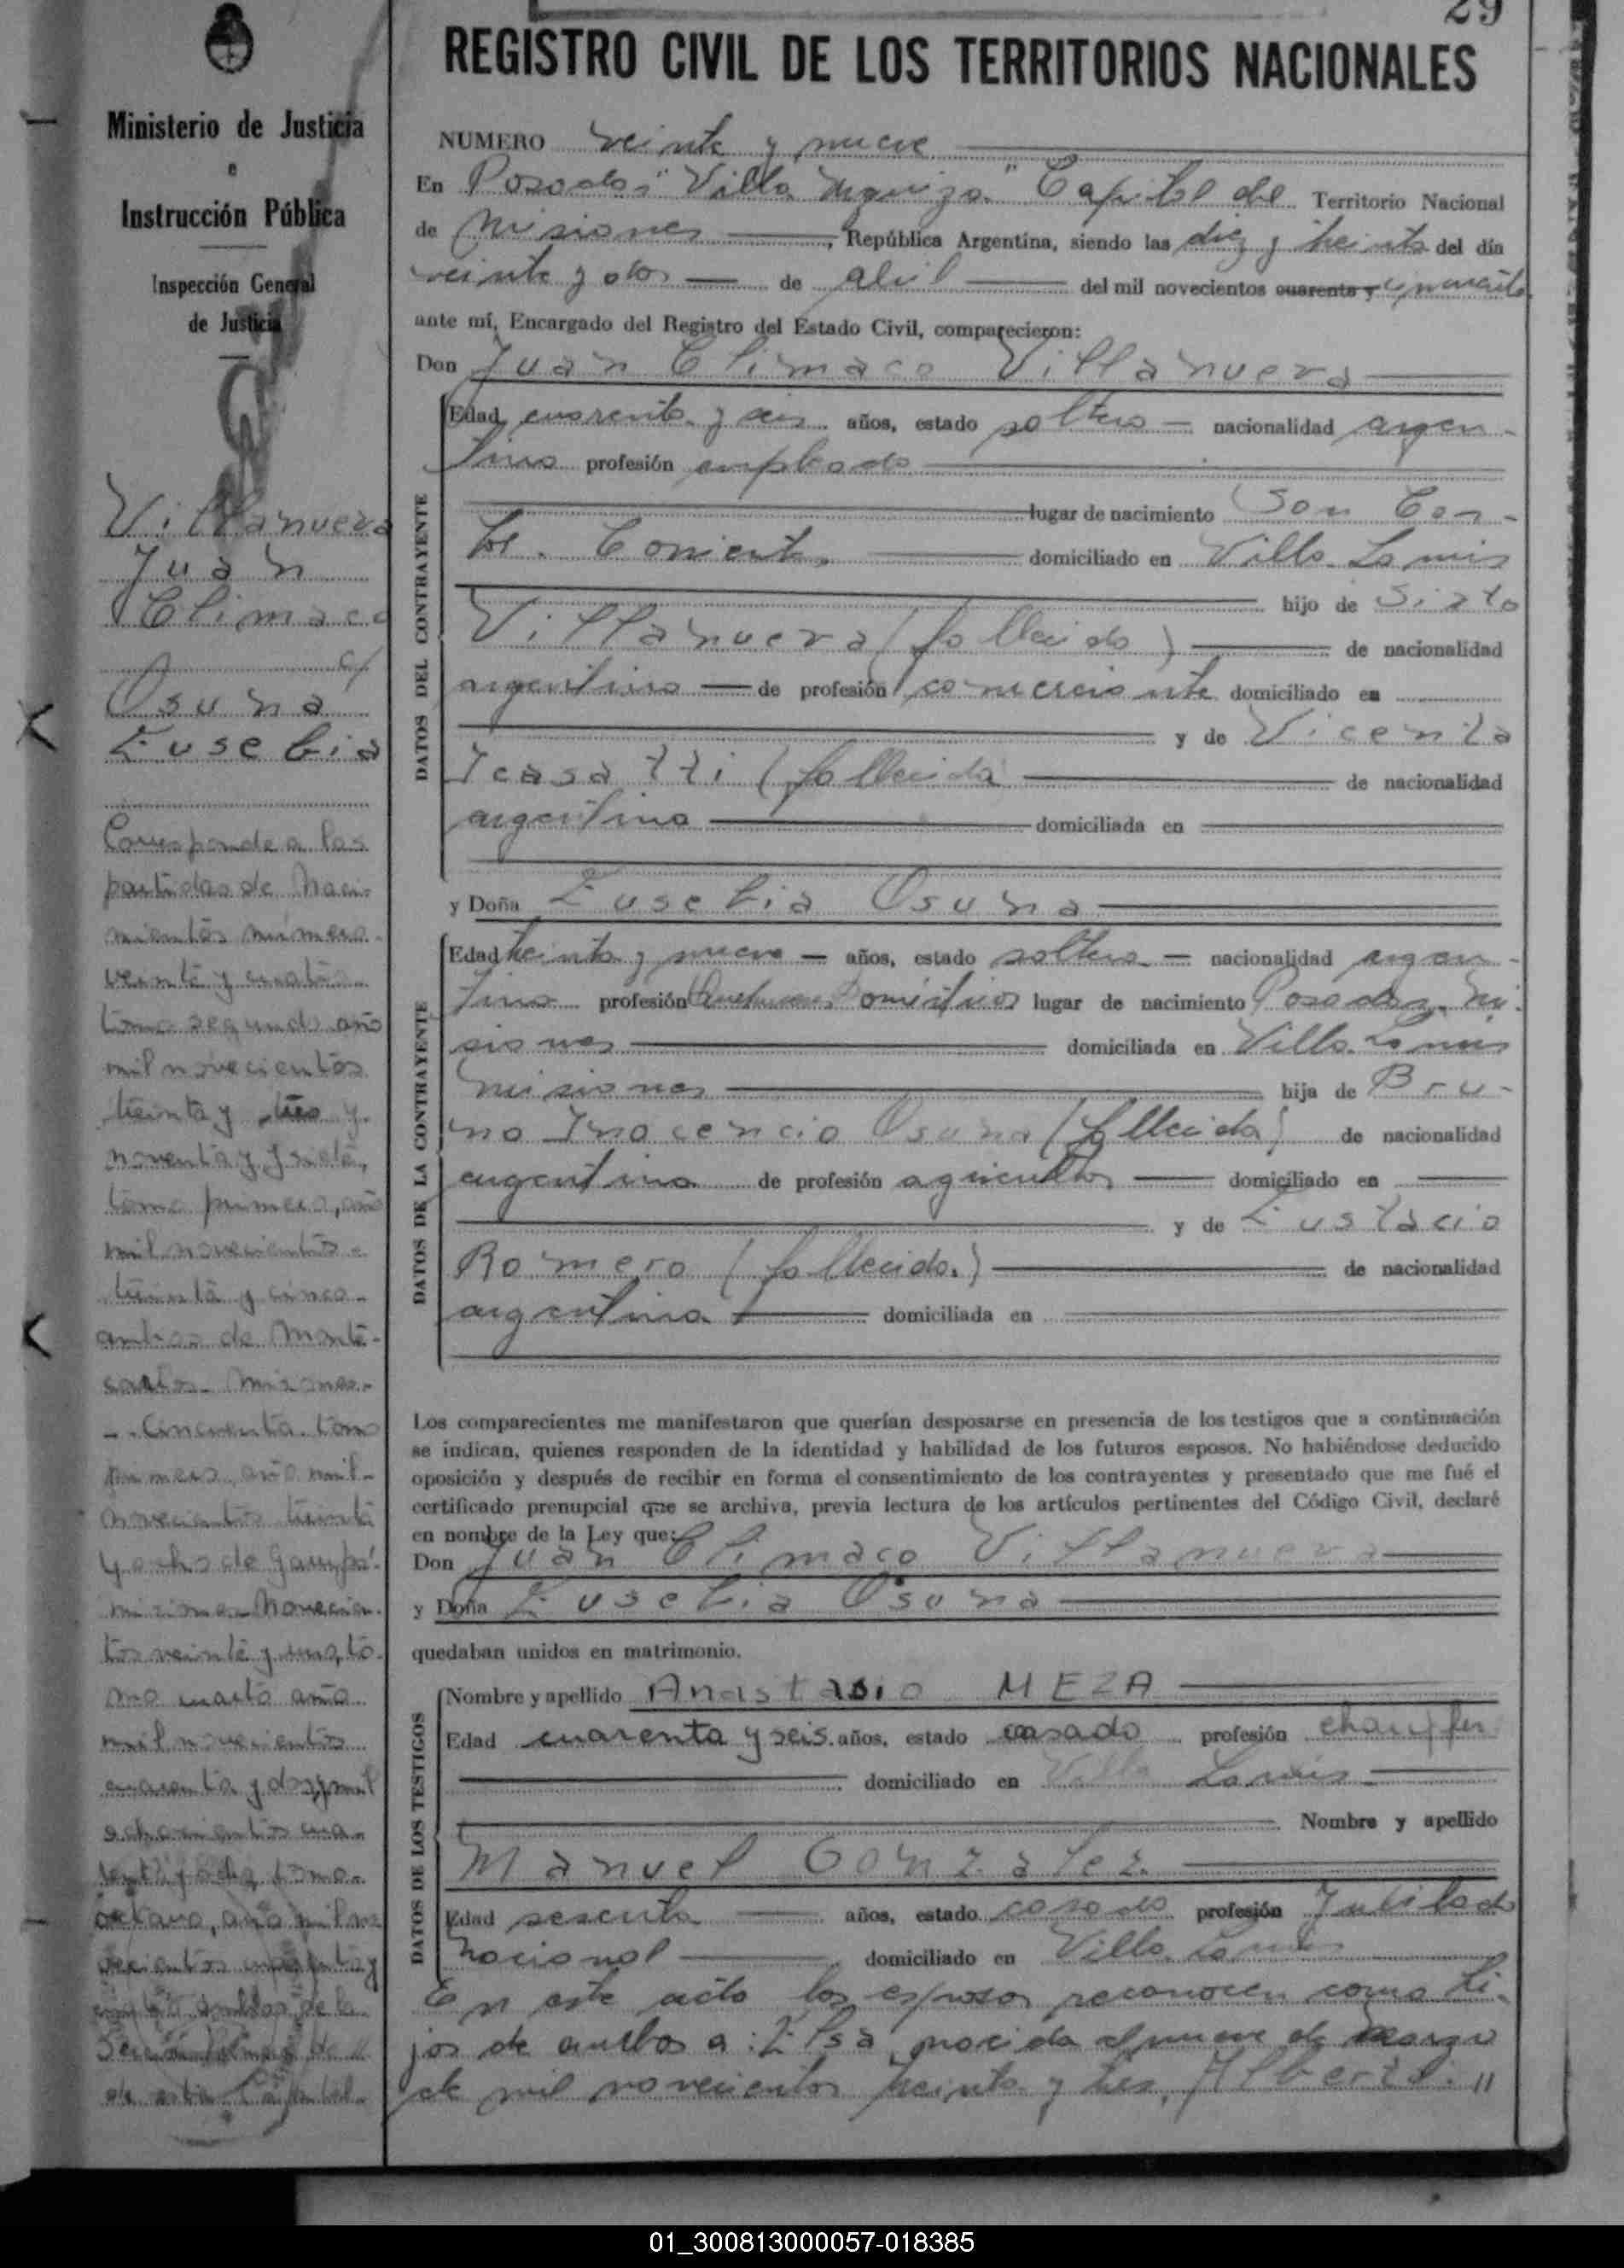 29
REGISTRO CIVIL DE LOS TERRITORIOS NACIONALES
Ministerio de Justicia
e
Instrucción Pública
Inspección General
de Justicia
Villanueva
Juan
Climaco
c/
Osuna
Eusebia
Corresponde a las
partidas de naci-
mientos número
veinte y cuatro
tomo segundo año
mil novecientos
treinta y tres y
noventa y siete,
tomo primero, año
mil novecientos
treinta y cinco
ambos de Monte-
carlo Misiones
Cincuenta tomo
primero, año mil
novecientos treinta
y ocho de Garupá
Misiones Novecien
tos veinte y uno, to
mo cuarto año
mil novecientos
cuarenta y dos, y mil
ochocientos cua
renta y tomo
octavo, año mil no
vecientos cuarenta y
ambos de la
Sección Primera de
de esta Capital
NUMERO veinte y nueve
En Posadas "Villa Urquiza" Capital del Territorio Nacional
de Misiones, República Argentina, siendo las diez y treinta del día
veinte y dos de abril del mil novecientos cuarenta y cincuenta
ante mí, Encargado del Registro del Estado Civil, comparecieron:
Don Juan Climaco Villanueva
DATOS DEL CONTRAYENTE
Edad cuarenta y seis años, estado soltero nacionalidad argen-
tino profesión empleado
lugar de nacimiento San Car-
los. Corrientes domiciliado en Villa Lanús
hijo de Sixto
Villanueva (fallecido) de nacionalidad
argentino de profesión comerciante domiciliado en
y de Vicenta
Icasatti (fallecida de nacionalidad
argentina domiciliada en
y Doña Eusebia Osuna
DATOS DE LA CONTRAYENTE
Edad treinta y nueve años, estado soltera nacionalidad argen-
tina profesión Quehaceres Domésticos lugar de nacimiento Posadas. Mi-
siones domiciliada en Villa Lanús
Misiones hija de Bru-
no Inocencio Osuna (fallecido) de nacionalidad
argentino de profesión agricultor domiciliado en
y de Eustacio
Romero (fallecida) de nacionalidad
argentina domiciliada en
Los comparecientes me manifestaron que querían desposarse en presencia de los testigos que a continuación
se indican, quienes responden de la identidad y habilidad de los futuros esposos. No habiéndose deducido
oposición y después de recibir en forma el consentimiento de los contrayentes y presentado que me fué el
certificado prenupcial que se archiva, previa lectura de los artículos pertinentes del Código Civil, declaré
en nombre de la Ley que:
Don Juan Climaco Villanueva
y Doña Eusebia Osuna
quedaban unidos en matrimonio.
DATOS DE LOS TESTIGOS
Nombre y apellido Anastasio MEZA
Edad cuarenta y seis años, estado casado profesión chauffer
domiciliado en Villa Lanús
Nombre y apellido
Manuel Gonzalez
Edad sesenta años, estado casado profesión Jubilado
Nacional domiciliado en Villa Lanús
En este acto los esposos reconocen como hi-
jos de ambos a: Elsa, nacida el nueve de marzo
de mil novecientos treinta y tres, Alberto.
01_300813000057-018385